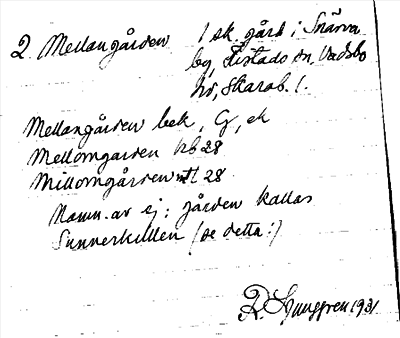 2. Mellangården 1 sk. gård i Snärva
by, Fistads sn, Vadsbo
hd, Skarab. l.
Mellangården bek, G, ek
Mellomgarden Jrb 28
Millomgården Mtl 28
Namn. av ej: gården kallas
Sunnerkullen (se detta:)
R. Ljunggren 1931